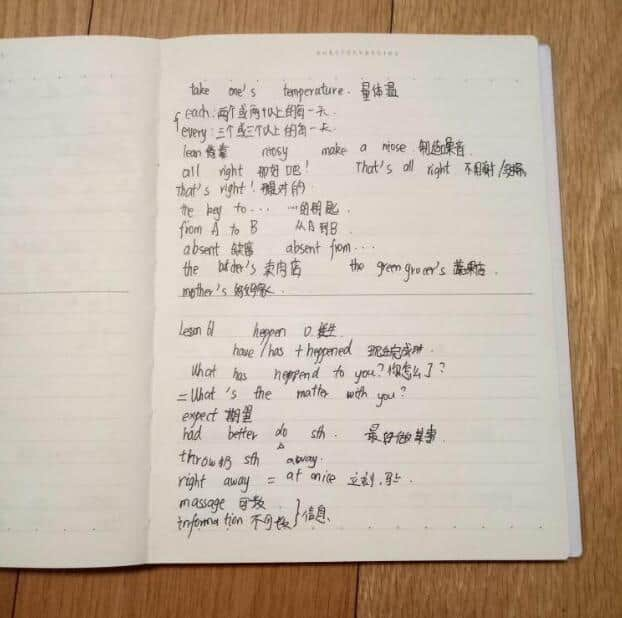 take one's temperature. 量体温
each: 两个或两个以上的每一天.
every: 三个或三个以上的每一天.
lean 倚靠 niosy make a niose. 制造噪音
all right 那好吧! That's all right 不用谢/
that's right! 很对的
the key to ... ...的钥匙.
from A to B 从A到B
absent 缺席 absent from ...
the 卖肉店 the greengrocer's 蔬果店
mother's 妈妈家.
Lesson 61 heppen v. 发生
have/has + heppened 现在完成时.
What has heppend to you? 你怎么了?
= What 's the matter with you?
expect 期望
had better do sth. 最好做某事
throw扔 sth away.
right away = at onice 立刻.马上
massage 可数
information 不可数 } 信息